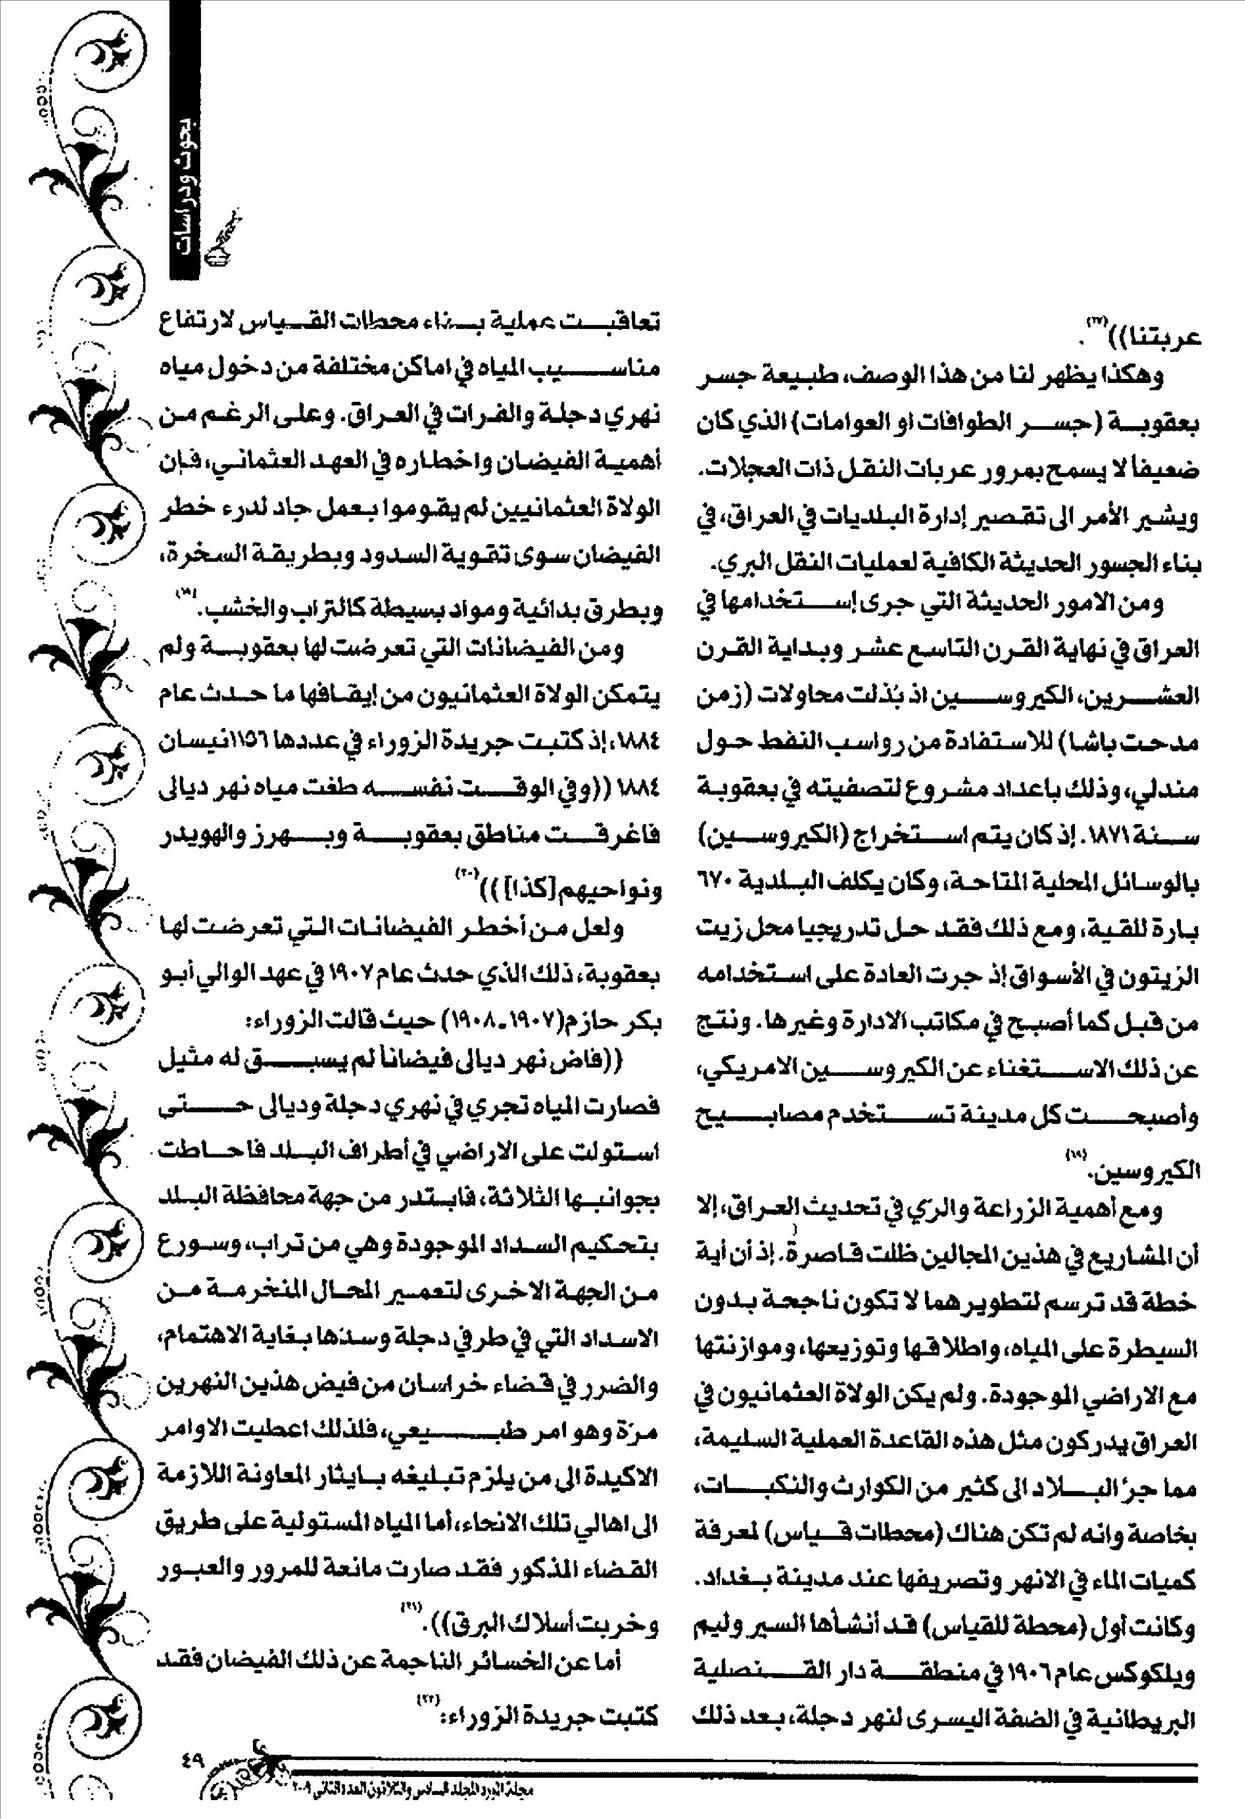 بحوث ودراسات
عربتنا))(٢٧).
وهكذا يظهر لنا من هذا الوصف، طبيعة جسر
بعقوبة (جسر الطوافات او العوامات) الذي كان
ضعيفاً لا يسمح بمرور عربات النقل ذات العجلات.
ويشير الأمر الى تقصير إدارة البلديات في العراق، في
بناء الجسور الحديثة الكافية لعمليات النقل البري.
ومن الامور الحديثة التي جرى إستخدامها في
العراق في نهاية القرن التاسع عشر وبداية القرن
العشرين، الكيروسين اذ بُذلت محاولات (زمن
مدحت باشا) للاستفادة من رواسب النفط حول
مندلي، وذلك باعداد مشروع لتصفيته في بعقوبة
سنة ١٨٧١. إذ كان يتم استخراج (الكيروسين)
بالوسائل المحلية المتاحة، وكان يكلف البلدية ٦٧٠
بارة للقية، ومع ذلك فقد حل تدريجيا محل زيت
الزيتون في الأسواق إذ جرت العادة على استخدامه
من قبل كما أصبح في مكاتب الادارة وغيرها. ونتج
عن ذلك الاستغناء عن الكيروسين الامريكي،
وأصبحت كل مدينة تستخدم مصابيح
الكيروسين.
ومع أهمية الزراعة والري في تحديث العراق، إلا
أن المشاريع في هذين المجالين ظلت قاصرة. إذ أن أية
خطة قد ترسم لتطويرهما لا تكون ناجحة بدون
السيطرة على المياه، واطلاقها وتوزيعها، وموازنتها
مع الاراضي الموجودة. ولم يكن الولاة العثمانيون في
العراق يدركون مثل هذه القاعدة العملية السليمة،
مما جرّ البلاد الى كثير من الكوارث والنكبات،
بخاصة وانه لم تكن هناك (محطات قياس) لمعرفة
كميات الماء في الانهر وتصريفها عند مدينة بغداد.
وكانت أول (محطة للقياس) قد أنشأها السير وليم
ويلكوكس عام ١٩٠٦ في منطقة دار القنصلية
البريطانية في الضفة اليسرى لنهر دجلة، بعد ذلك
تعاقبت عملية بناء محطات القياس لارتفاع
مناسيب المياه في اماكن مختلفة من دخول مياه
نهري دجلة والفرات في العراق. وعلى الرغم من
أهمية الفيضان واخطاره في العهد العثماني، فإن
الولاة العثمانيين لم يقوموا بعمل جاد لدرء خطر
الفيضان سوى تقوية السدود وبطريقة السخرة،
وبطرق بدائية ومواد بسيطة كالتراب والخشب.
ومن الفيضانات التي تعرضت لها بعقوبة ولم
يتمكن الولاة العثمانيون من إيقافها ما حدث عام
١٨٨٤، إذ كتبت جريدة الزوراء في عددها ١١٥٦ نيسان
١٨٨٤ ((وفي الوقت نفسه طغت مياه نهر ديالى
فاغرقت مناطق بعقوبة وبهرز والهويدر
ونواحيهم [كذا]))(٢٠)
ولعل من أخطر الفيضانات التي تعرضت لها
بعقوبة، ذلك الذي حدث عام ١٩٠٧ في عهد الوالي أبو
بكر حازم(١٩٠٧-١٩٠٨) حيث قالت الزوراء:
((فاض نهر ديالى فيضاناً لم يسبق له مثيل
فصارت المياه تجري في نهري دجلة وديالى حتى
استولت على الاراضي في أطراف البلد فاحاطت
بجوانبها الثلاثة، فابتدر من جهة محافظة البلد
بتحكيم السداد الموجودة وهي من تراب، وسورع
من الجهة الاخرى لتعمير المحال المنخرمة من
الاسداد التي في طرفي دجلة وسدّها بغاية الاهتمام،
والضرر في قضاء خراسان من فيض هذين النهرين
مرّة وهو امر طبيعي، فلذلك اعطيت الاوامر
الاكيدة الى من يلزم تبليغه بايثار المعاونة اللازمة
الى اهالي تلك الانحاء، أما المياه المستولية على طريق
القضاء المذكور فقد صارت مانعة للمرور والعبور
وخربت أسلاك البرق)).(٢١)
أما عن الخسائر الناجمة عن ذلك الفيضان فقد
كتبت جريدة الزوراء:(٢٢)
٤٩
مجلة المورد المجلد السادس والثلاثون العدد الثاني ٢٠٠٩